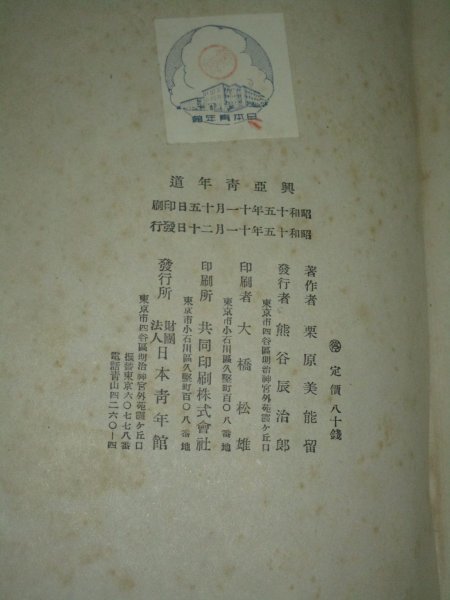 日本青年館
興亞靑年道
昭和十五年十一月十五日印刷
昭和十五年十一月二十日發行
定價八十錢
著作者 栗原美能留
發行者 熊谷辰治郎
東京市四谷區明治神宮外苑霞ヶ丘口
印刷者 大橋松雄
東京市小石川區久堅町百〇八番地
印刷所 共同印刷株式會社
東京市小石川區久堅町百〇八番地
發行所 財團法人日本靑年館
東京市四谷區明治神宮外苑霞ヶ丘口
振替東京六〇七七八番
電話靑山四二六〇―四